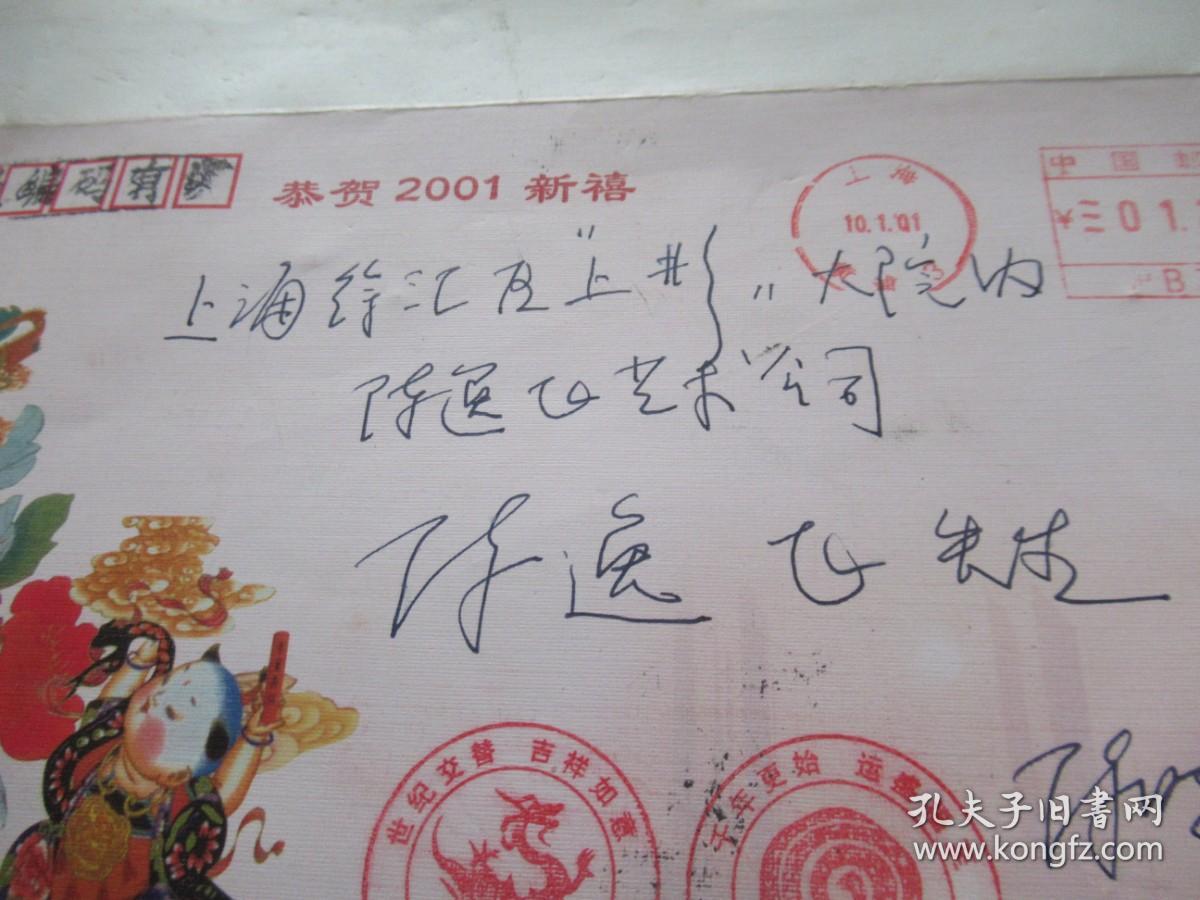 编码有
恭贺2001新禧
上海
10.1.01
中国邮
¥ 01.
B
上海徐汇区"上影"大院内
陈逸飞艺术公司
陈逸飞先生
世纪交替 吉祥如意
千年更始 运
陈
孔夫子旧书网
www.kongfz.com